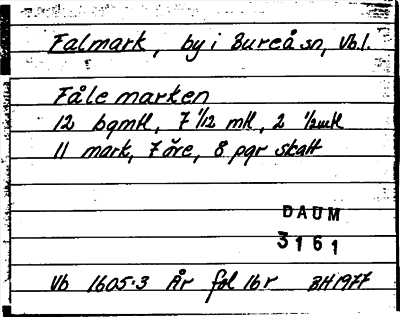 Falmark, by i Bureå sn, Vb l.
Fåle marken
12 bgmtl, 7 1/12 mtl, 2 1/2mtl
11 mark, 7 öre, 8 pgr skatt
DAUM
3161
Vb 1605:3 År fol 16r BH1977